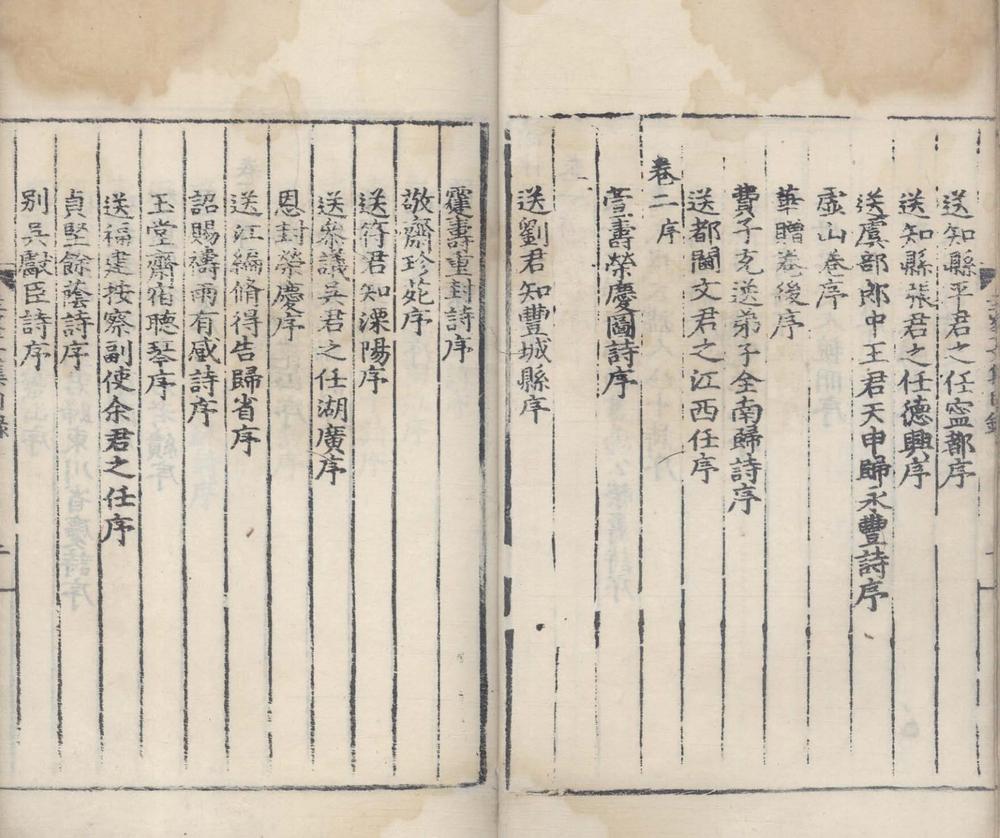 送知縣平君之任寍都序
送知縣張君之任德興序
送虞部郎中王君天申歸永豐詩序
虛山卷序
華贈卷後序
費子充送弟子全南歸詩序
送都閫文君之江西任序
卷二 序
萱壽榮慶圖詩序
送劉君知豐城縣序
霞壽重封詩序
敬齋珍苑序
送符君知溧陽序
送叅議吳君之任湖廣序
恩封榮慶序
送江編脩得告歸省序
詔賜禱雨有感詩序
玉堂齋宿聽琴序
送福建按察副使余君之任序
貞堅餘蔭詩序
别吳獻臣詩序